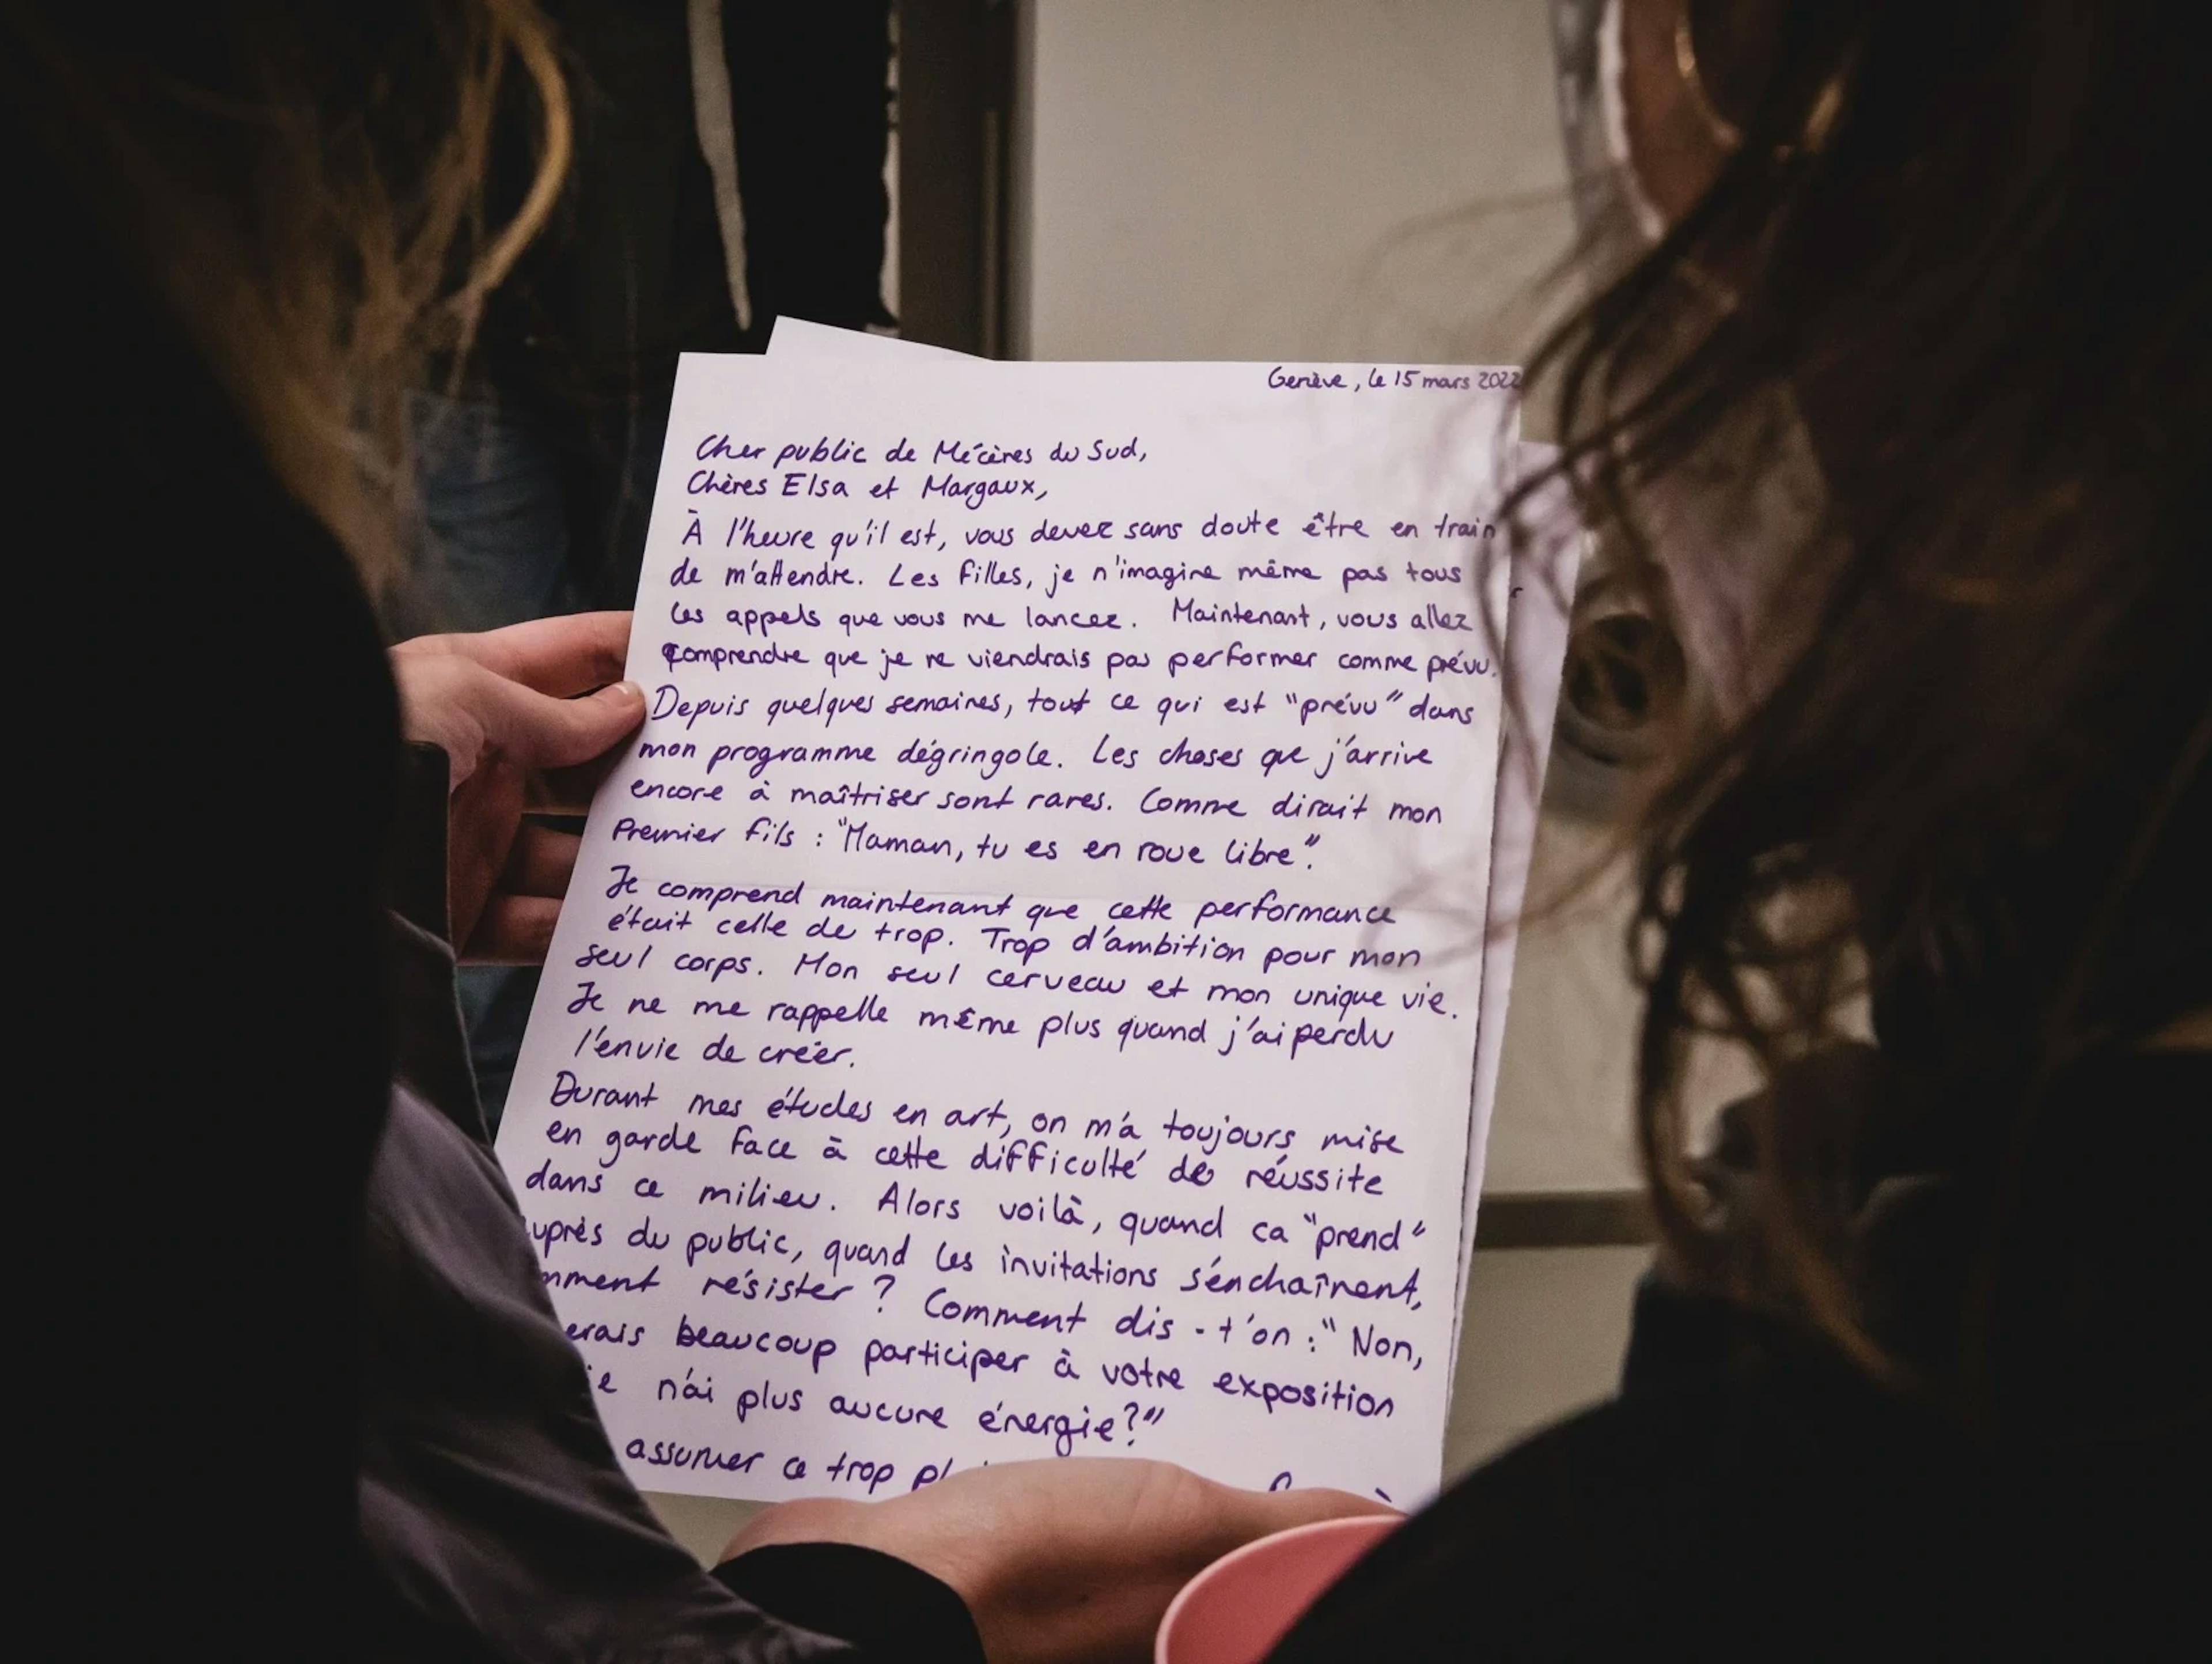 Genève, le 15 mars 2022
Cher public de Mécènes du Sud,
Chères Elsa et Margaux,
À l'heure qu'il est, vous devez sans doute être en train
de m'attendre. Les filles, je n'imagine même pas tous
les appels que vous me lancez. Maintenant, vous allez
comprendre que je ne viendrais pas performer comme prévu.
Depuis quelques semaines, tout ce qui est "prévu" dans
mon programme dégringole. Les choses que j'arrive
encore à maîtriser sont rares. Comme dirait mon
Premier fils : "Maman, tu es en roue libre".
Je comprend maintenant que cette performance
était celle de trop. Trop d'ambition pour mon
seul corps. Mon seul cerveau et mon unique vie.
Je ne me rappelle même plus quand j'ai perdu
l'envie de créer.
Durant mes études en art, on m'a toujours mise
en garde face à cette difficulté de réussite
dans ce milieu. Alors voilà, quand ca "prend"
uprès du public, quand les invitations s'énchaînent,
mment résister ? Comment dis-t'on : "Non,
erais beaucoup participer à votre exposition
je n'ai plus aucune énergie?"
assumer ce trop pl